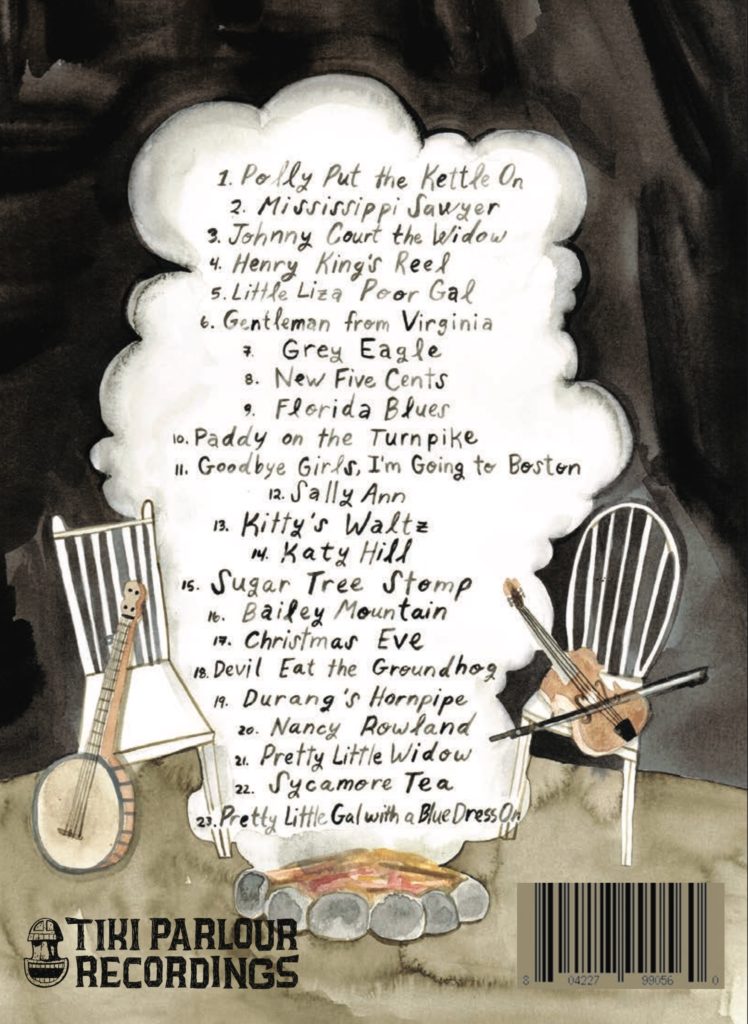 1. Polly Put the Kettle On
2. Mississippi Sawyer
3. Johnny Court the Widow
4. Henry King's Reel
5. Little Liza Poor Gal
6. Gentleman from Virginia
7. Grey Eagle
8. New Five Cents
9. Florida Blues
10. Paddy on the Turnpike
11. Goodbye Girls, I'm Going to Boston
12. Sally Ann
13. Kitty's Waltz
14. Katy Hill
15. Sugar Tree Stomp
16. Bailey Mountain
17. Christmas Eve
18. Devil Eat the Groundhog
19. Durang's Hornpipe
20. Nancy Rowland
21. Pretty Little Widow
22. Sycamore Tea
23. Pretty Little Gal with a Blue Dress On
TIKI PARLOUR
RECORDINGS
8 04227 99056 0